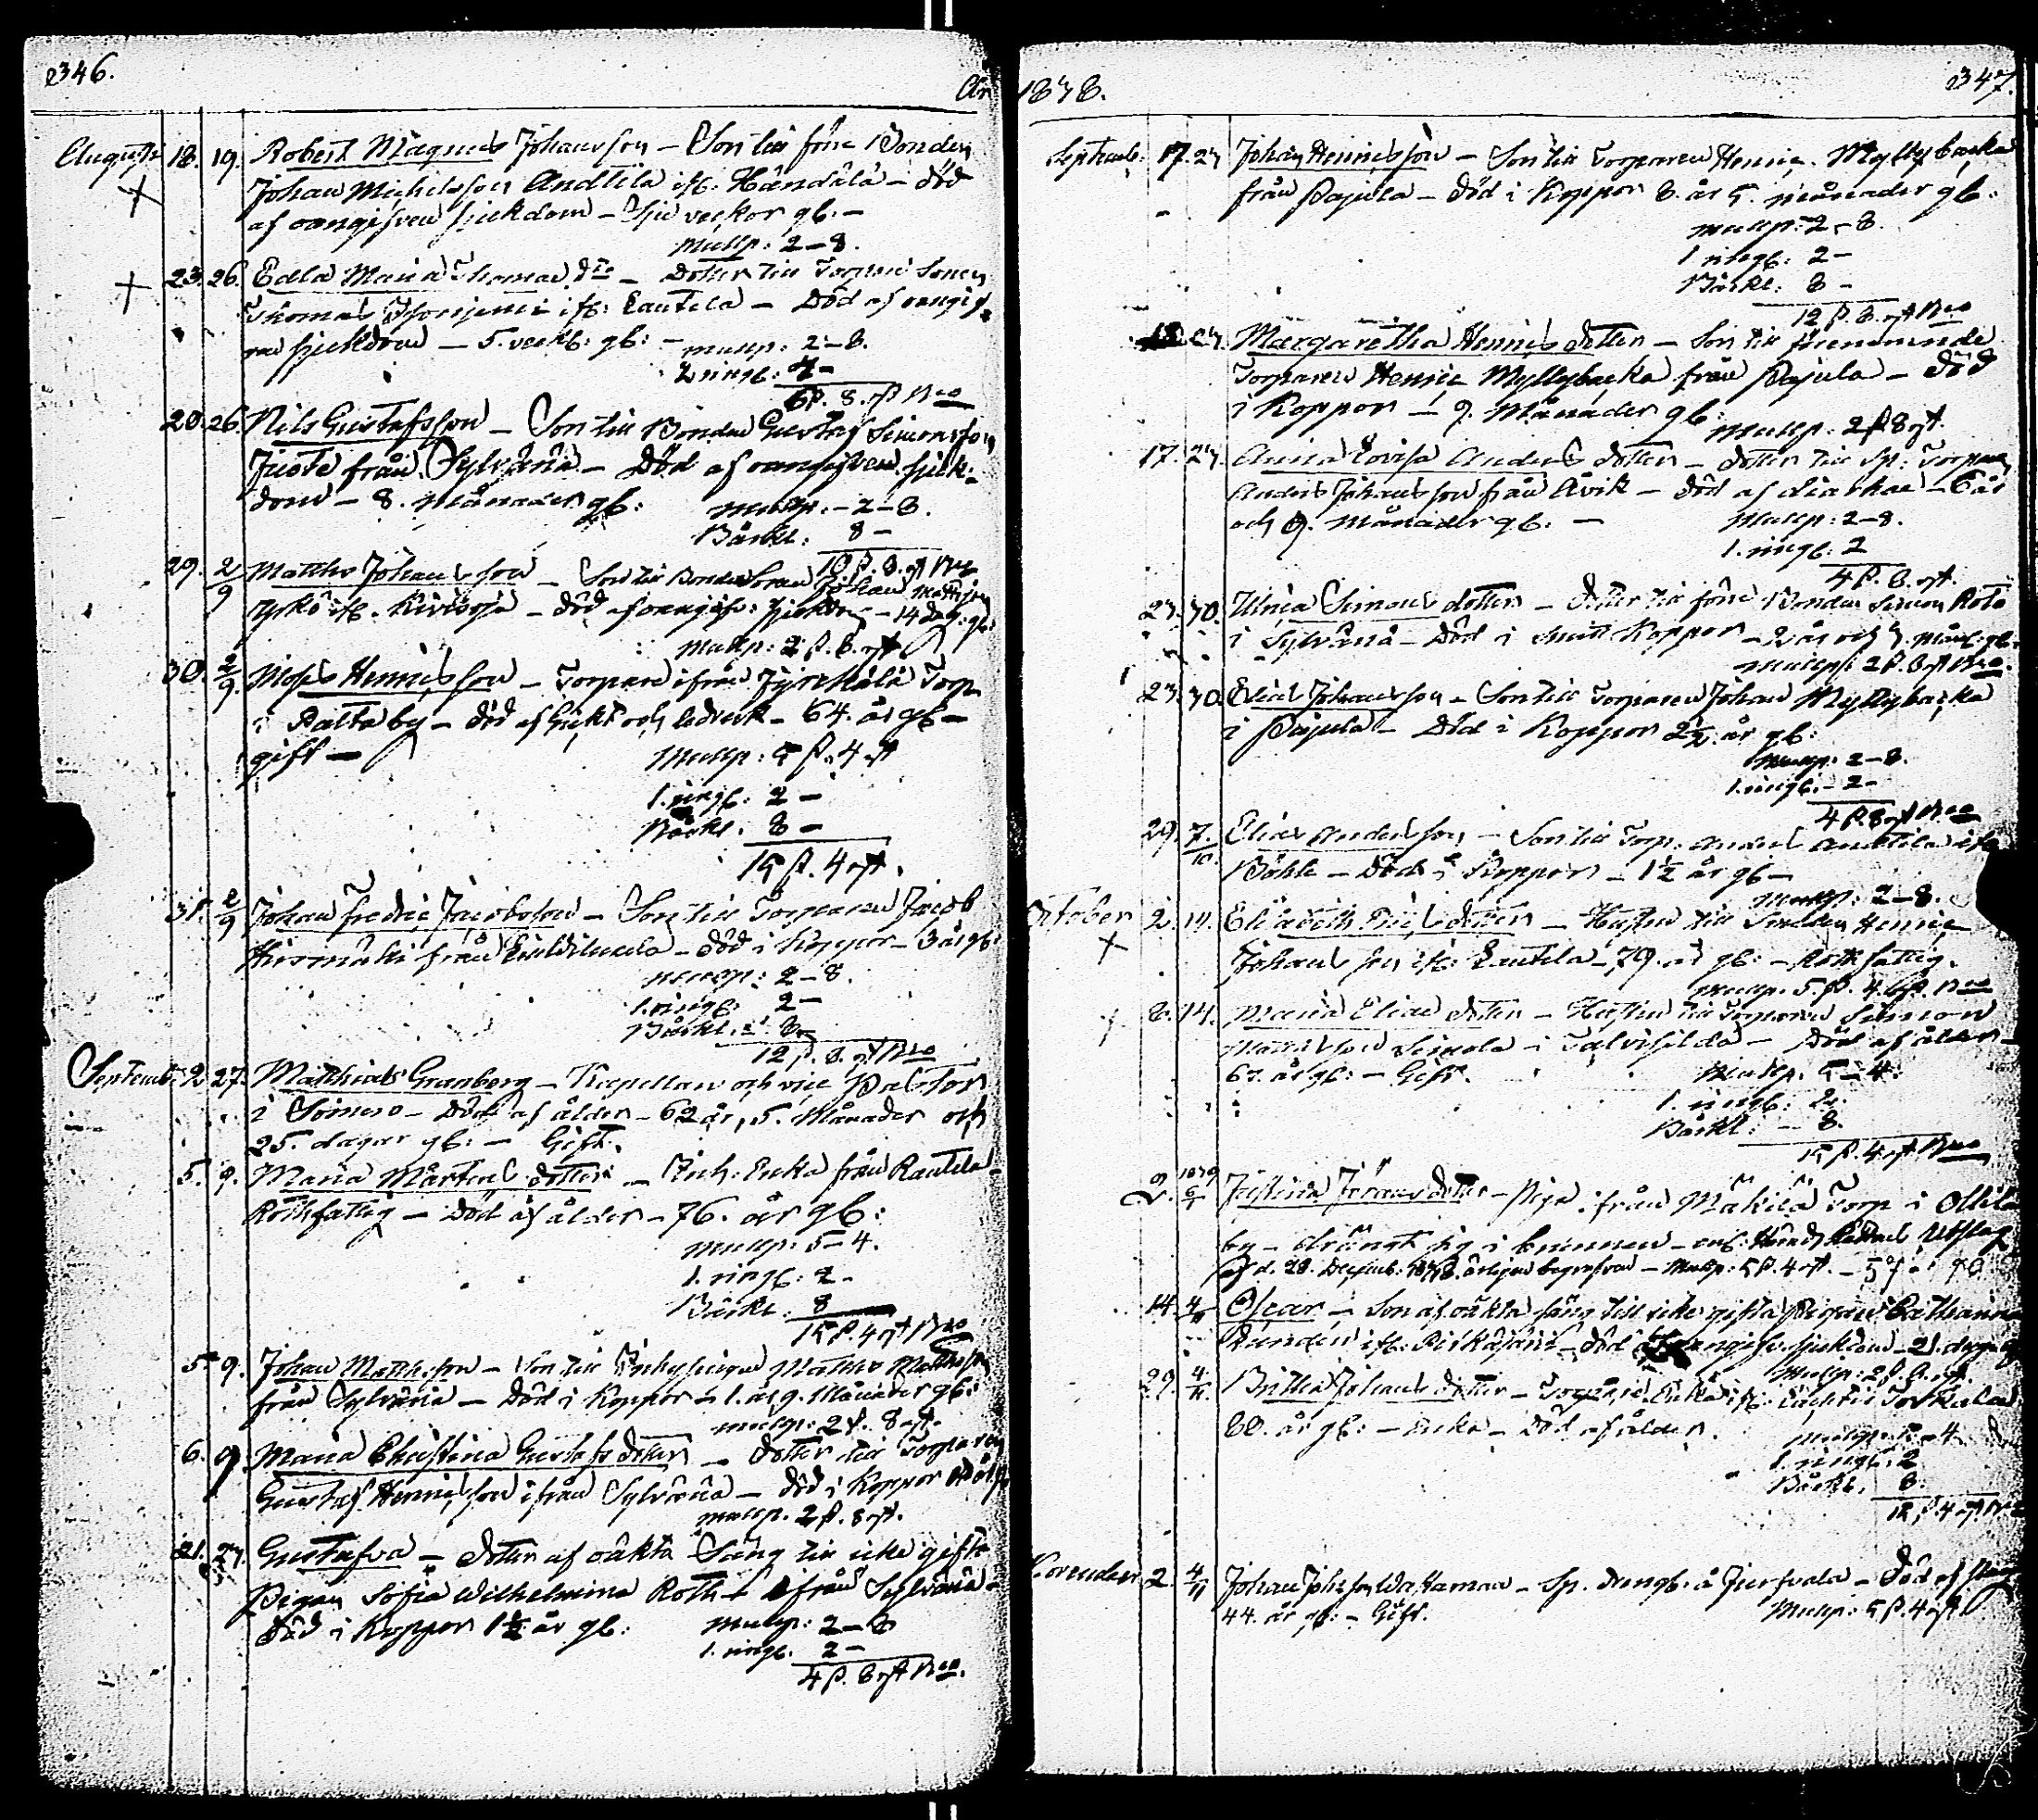 346.
År
Augusti 18. 19. Robert Magnus Johansson – Son till förre Bonden
Johan Michelsson Andtila ifr: Händälä – död
af oangifven sjukdom – Sju veckor gl. –
Mullp: 2–8.
23. 26. Edla Maria Thomae dr – Dotter till Torpare Sonen
Thomas ifr: Lautela – Död af oangif
ven sjukdom – 5. veck: gl: –
mullp: 2–8.
2 ringb: 4–
6 β. 8. rst Bco
20. 26. Nils Gustafsson – Son till Bonden Gustaf Simonsson
Juote från Sylvänä – Död af oangifven sjuk:
dom – 8. månader gl:
mullp: – 2–8.
Bårkl: 8 –
10 β. 8. rst Bco
29. 2/9 Matths Johansson – Son till Bonde Sonen Johan Mattsson
ifr. – död af oangifv: sjukdom – 14 dag. gl:
Mullp: 2 β. 8. rst
30. 2/9 Moses Hennicsson – Torpare ifrån Jyrehälä Torp
i Palta by – död af Gikt och ledverk – 64. år gl –
gift –
Mullp: 5 β. 4 rst
1. ringb: 2 –
Bårkl. 8 –
15 β. 4 rst.
31. 2/9 Johan Fredric Jacobsson – Son till Torparen Jacob
Hirsmäki från – död i Koppor – 3 år gl:
mullp: 2–8.
1. ringb: 2 –
Bårkl. 8–
12 β. 8. rst Bco
Septemb: 2 27. Matthias Granberg – Kapellan och vice Pastor
i Somero – Död af ålder – 62 år, 5. Månader och
25. dagar gl: – Gift.
5. 9. Maria Mårtens dotter – Inh: Enka från Rautela –
Rothfattig – Död af ålder – 76. år gl:
mullp: 5–4.
1. ringb: 2–
Bårkl: 8
15 β. 4 rst Bco
5. 9. Johan Mattsson – Son till Inhysingen Matths Mattsson
från Sylvänä – Död i Koppor – 1. år 9. Månader gl:
mullp: 2 β. 8 rst.
6. 9. Maria Christina Gustafs dotter – Dotter till Torparen
Gustaf Hennicsson ifrån Sylvänä – död i Koppor
mullp. 2 β. 8 rst.
21. 27. Gustafva – dotter af oäkta Säng till icke gifta
Pigan Sofia Wilhelmina Roth ifrån Sylvänä –
död i Koppor 1½ år gl:
mullp: 2–8
1. ringb. 2 –
4 β. 8 rst Bco.
1838.
347.
Septemb: 17. 23 Johan Hennicsson – Son till Torparen Henric Myllybacka
från Pajula – död i Koppor 8. år 5. månader gl:
mullp: 2–8.
1 ringb: 2–
Bårkl: 8 –
12 β. 8. rst Bco
23. Margaretha Hennics dotter – Son till förenämnde
Torparen Henric Myllybacka från Pajula – Död
i Koppor – 9. Månader gl:
Mullp: 2 β 8 rst.
17. 23. Anna Lovisa Anders dotter – dotter till Sp: Torparen
Anders Johansson från Åvik – död af diarhae – 6 år
och 9. Månader gl: –
Mullp: 2–8.
1. ringb: 2
4 β. 8. rst.
23. 30. Ulrica Simons dotter – Dotter till förre Bonden Simon Roto
i Sylvänä – Död i Koppor – 2 år och 3. mån: gl.
mullp: 2 β. 8 rst Bco.
23. 30. Elias Johansson – Son till Torparen Johan Myllybacka
i Pajula – Död i Koppor 2½ år gl:
Mullp: 2–8.
1. ringb. – 2–
4 β. 8 rst Bco
29. 7/10. Elias Andersson – Son till Torp: Anders Anttila ifr
Böhle – Död i Koppor – 1½ år gl –
mullp: 2–8.
October 2. 14. Elisabeth dotter – Hustru till Smeden Henric
Johansson ifr: Lautela – 79. år gl: – Rothfattig.
mullp. 5 β. 4. rst. Bco
8. 14. Maria Eliae dotter – Hustru till Torparen Simon
Mattsson Seikola i Talvisilda – Död af ålder –
67. år gl: – Gift.
Mullp. 5–4.
1. ringb: 2.
Bårkl: – 8.
15 β. 4 rst Bco
9. 1839 Justina Jöransdotter – Piga ifrån Mäkilä Torp i Ollila
by – dränkt sig i brunnen – enl: Härads Rättens Utslag
af d. 28. Decemb: 1838 begrafven – Mullp: 5 β. 4 rst.
14. 4/11 Oscar – Son af oäkta säng till icke gifta Pigan Catharina
Lindén ifr. – död af oangifv. sjukdom – 21. dagar gl
Mullp: 2 β. 8. rst.
29. 4/11. Britta Johans dotter – Torpare Enka ifr: Torkala
80. år gl: – Enka – Död af ålder.
mullp: 5–4.
1. ringb: 2
Bårkl. 8.
15 β. 4 rst. Bco
November 2. 4/11 Johan – Sp. å Jursvala – Död af
44. år gl: – Gift.
Mullp: 5 β. 4 rst